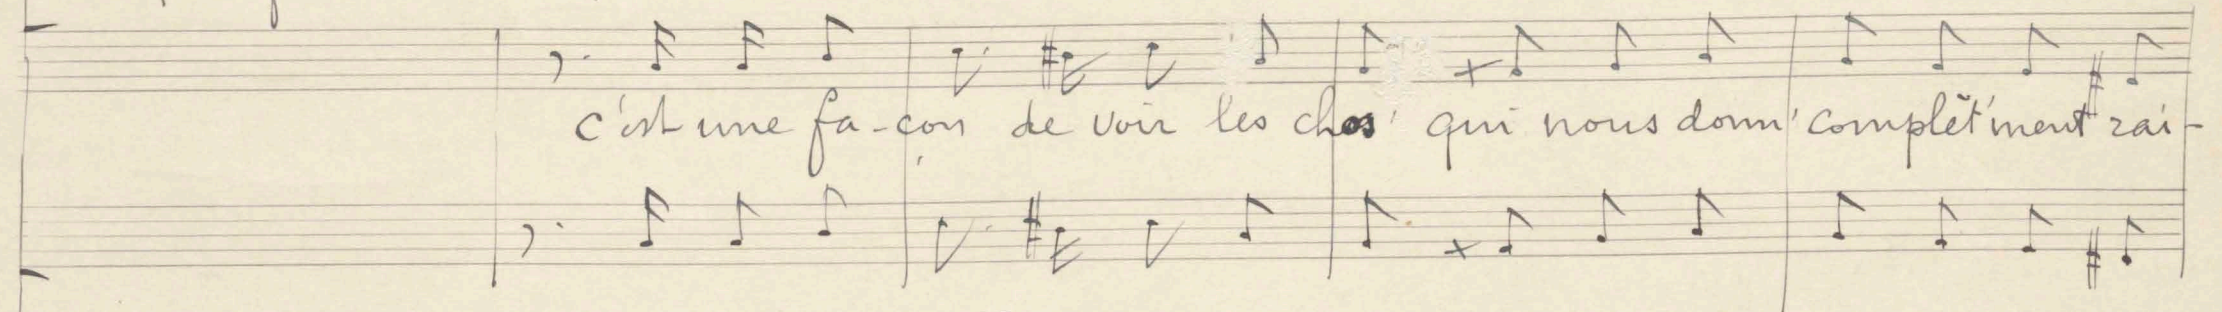 c'est une fa-çon de voir les chos' qui nous donn' complèt'ment rai-